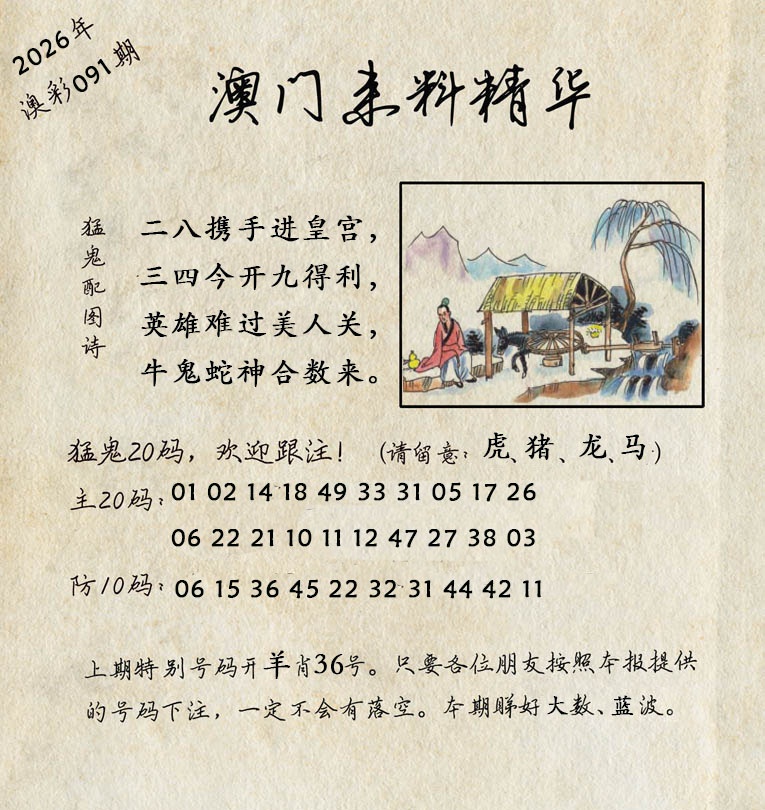 2026年
澳彩091期
澳门来料精华
猛鬼配图诗
二八携手进皇宫，
三四今开九得利，
英雄难过美人关，
牛鬼蛇神合数来。
猛鬼20码，欢迎跟注！（请留意：虎、猪、龙、马）
主20码：01 02 14 18 49 33 31 05 17 26
06 22 21 10 11 12 47 27 38 03
防10码：06 15 36 45 22 32 31 44 42 11
上期特别号码开羊肖36号。只要各位朋友按照本报提供
的号码下注，一定不会有落空。本期睇好大数、蓝波。